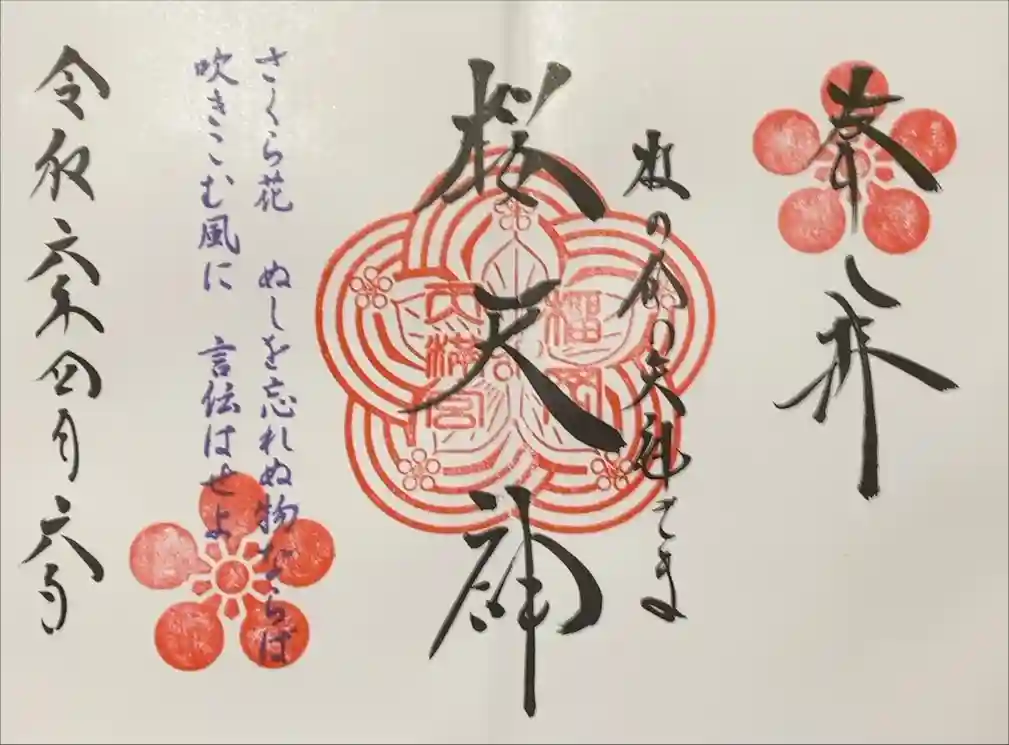 奉拝
天神さま
桜天神
福岡
天満宮
さくら花　ぬしを忘れぬ物ならば
吹きこむ風に　言伝はせよ
令和六年四月六日